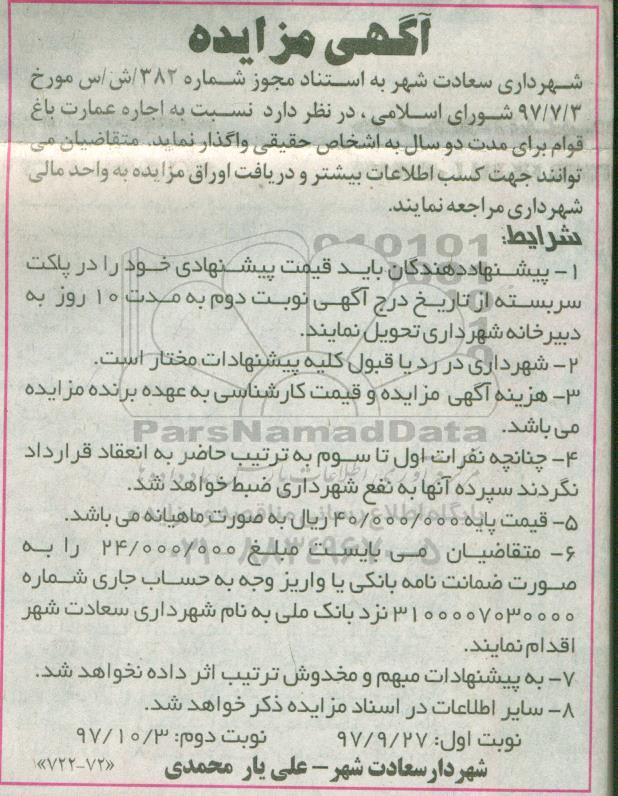 آگهی مزایده
شهرداری سعادت شهر به استناد مجوز شماره ۳۸۲/ش/س مورخ
۹۷/۷/۳ شورای اسلامی ، در نظر دارد نسبت به اجاره عمارت باغ
قوام برای مدت دو سال به اشخاص حقیقی واگذار نماید. متقاضیان می
توانند جهت کسب اطلاعات بیشتر و دریافت اوراق مزایده به واحد مالی
شهرداری مراجعه نمایند.
شرایط:
۱- پیشنهاددهندگان باید قیمت پیشنهادی خود را در پاکت
سربسته از تاریخ درج آگهی نوبت دوم به مدت ۱۰ روز به
دبیرخانه شهرداری تحویل نمایند.
۲- شهرداری در رد یا قبول کلیه پیشنهادات مختار است.
۳- هزینه آگهی مزایده و قیمت کارشناسی به عهده برنده مزایده
می باشد.
ParsNamadData
۴- چنانچه نفرات اول تا سوم به ترتیب حاضر به انعقاد قرارداد
نگردند سپرده آنها به نفع شهرداری ضبط خواهد شد.
۵- قیمت پایه ۴۰/۰۰۰/۰۰۰ ریال به صورت ماهیانه می باشد.
۰۲۱-۸۸۳۴۹۶۷۰-۵
۶- متقاضیان می بایست مبلغ ۲۴/۰۰۰/۰۰۰ را به
صورت ضمانت نامه بانکی یا واریز وجه به حساب جاری شماره
۳۱۰۰۰۰۷۰۳۰۰۰۰ نزد بانک ملی به نام شهرداری سعادت شهر
اقدام نمایند.
۷- به پیشنهادات مبهم و مخدوش ترتیب اثر داده نخواهد شد.
۸- سایر اطلاعات در اسناد مزایده ذکر خواهد شد.
نوبت اول: ۹۷/۹/۲۷ نوبت دوم: ۹۷/۱۰/۳
شهردار سعادت شهر – علی یار محمدی «۷۲-۷۲۲»